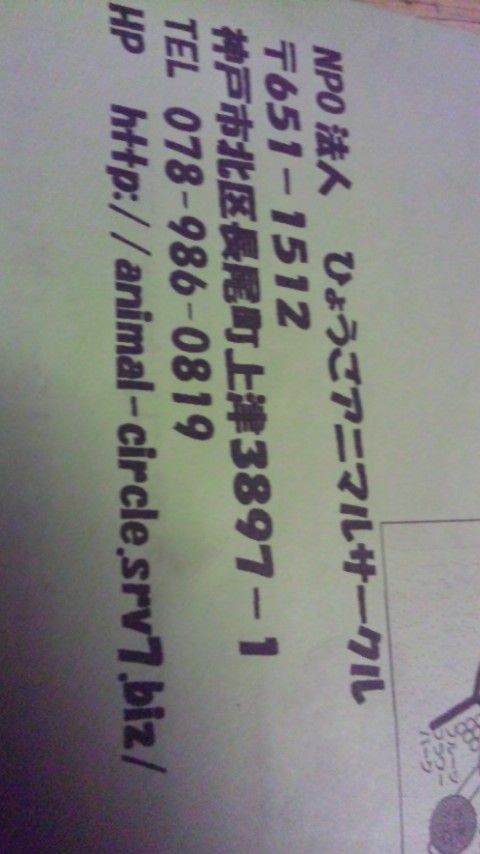 NPO法人 ひょうごアニマルサークル
〒651-1512
神戸市北区長尾町上津3897-1
TEL 078-986-0819
HP http://animal-circle.srv7.biz/
フルーツ
フラワー
パーク